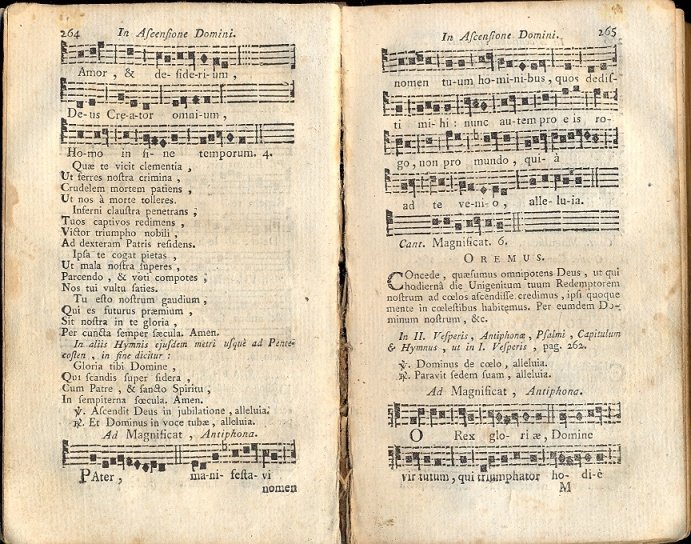 264 In Aſcenſione Domini.
Amor, & de-ſide-ri-um,
De-us Cre-a-tor omni-um,
Ho-mo in fi-ne temporum. 4.
Quæ te vicit clementia,
Ut ferres noſtra crimina,
Crudelem mortem patiens,
Ut nos à morte tolleres.
Inferni clauſtra penetrans;
Tuos captivos redimens,
Victor triumpho nobili,
Ad dexteram Patris reſidens.
Ipſa te cogat pietas,
Ut mala noſtra ſuperes,
Parcendo, & voti compotes;
Nos tui vultu ſaties.
Tu eſto noſtrum gaudium,
Qui es futurus præmium,
Sit noſtra in te gloria,
Per cuncta ſemper ſæcula. Amen.
In aliis Hymnis ejuſdem metri uſquè ad Pente-
coſten, in fine dicitur:
Gloria tibi Domine,
Qui ſcandis ſuper ſidera,
Cum Patre, & ſancto Spiritu,
In ſempiterna ſœcula. Amen.
℣. Aſcendit Deus in jubilatione, alleluia.
℟. Et Dominus in voce tubæ, alleluia.
Ad Magnificat, Antiphona.
PAter, ma-ni-feſta-vi
nomen
In Aſcenſione Domini. 265
nomen tu-um ho-mi-ni-bus, quos dediſ-
ti mi-hi: nunc au-tem pro e-is ro-
go, non pro mundo, qui-à
ad te ve-ni-o, alle-lu-ia.
Cant. Magnificat. 6.
OREMUS.
COncede, quæſumus omnipotens Deus, ut qui
hodiernâ die Unigenitum tuum Redemptorem
noſtrum ad cœlos aſcendiſſe credimus, ipſi quoque
mente in cœleſtibus habitemus. Per eumdem Do-
minum noſtrum, &c.
In II. Veſperis, Antiphonæ, Pſalmi, Capitulum
& Hymnus, ut in I. Veſperis, pag. 262.
℣. Dominus de cœlo, alleluia.
℟. Paravit ſedem ſuam, alleluia.
Ad Magnificat, Antiphona.
O Rex glo-ri æ, Domine
vir tutum, qui triumphator ho-di-è
M